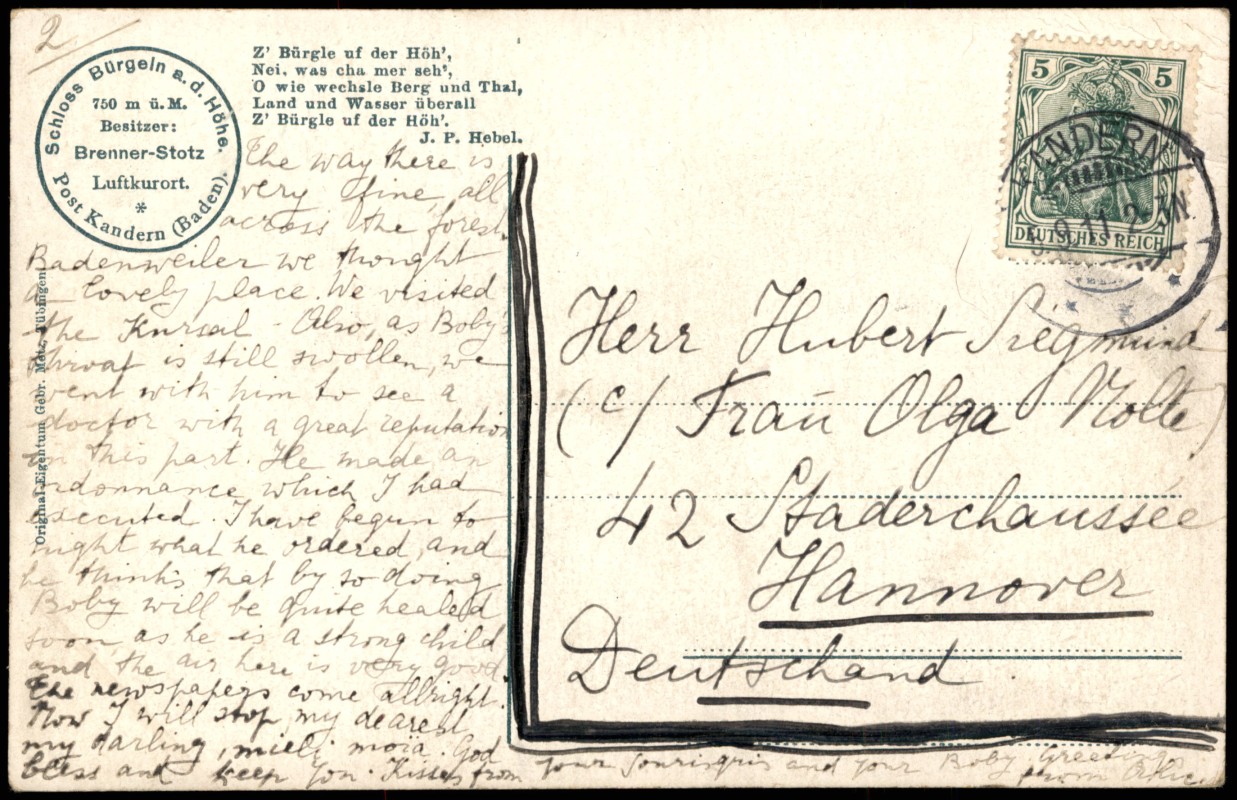 2
Schloss Bürgeln a. d. Höhe.
750 m ü. M.
Besitzer:
Brenner-Stotz
Luftkurort.
*
Post Kandern (Baden).
Z' Bürgle uf der Höh',
Nei, was cha mer seh',
O wie wechsle Berg und Thal,
Land und Wasser überall
Z' Bürgle uf der Höh'.
J. P. Hebel.
The way there is
very fine, all
across the forest.
Badenweiler we thought
a lovely place. We visited
the Kursal - Also, as Boby's
throat is still swollen, we
went with him to see a
doctor with a great reputation
in this part. He made an
ordonnance which I had
executed. I have begun to
night what he ordered, and
he thinks that by so doing
Boby will be quite healed
soon, as he is a strong child
and the air here is very good.
The newspapers come allright.
Now I will stop my dearest
my darling, moia. God
bless and keep you. Kisses from
your and your Boby. Greetings
from
Original-Eigentum Gebr. Metz, Tübingen.
5 5
DEUTSCHES REICH
KANDERN
9.11.2-3N.
Herr Hubert Siegmund
(c/ Frau Olga Nolte)
42 Staderchaussée
Hannover
Deutschand